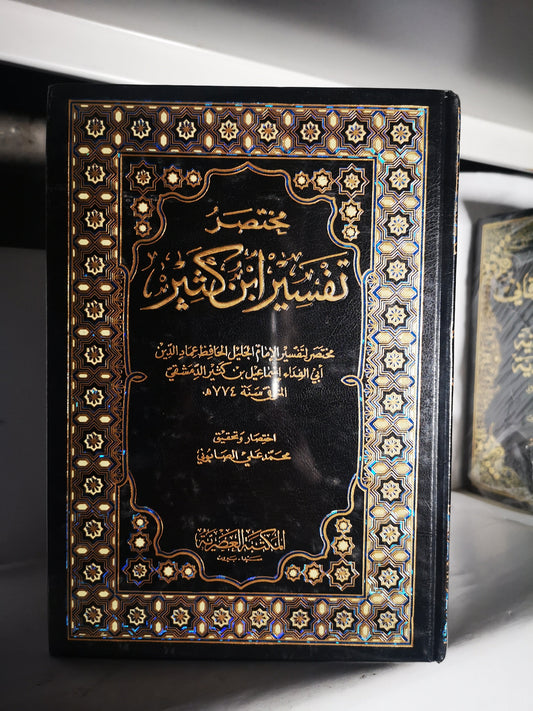 مختصر
تفسير ابن كثير
مختصر لتفسير الإمام الجليل الحافظ عماد الدين
أبي الفداء إسماعيل بن كثير الدمشقي
المتوفى سنة ٧٧٤ هـ
اختصار وتحقيق
محمد علي الصابوني
المكتبة العصرية
صيدا - بيروت